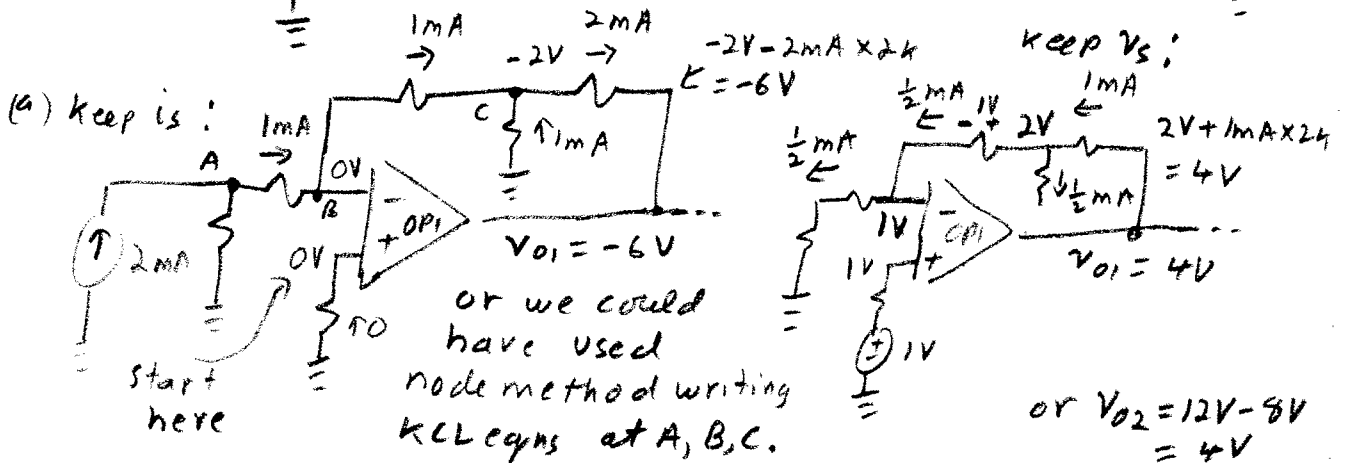 (a) Keep is :
1mA →
2mA →
-2V
-2V-2mA×2k
= -6V
1mA →
A
0V
B
C
↑1mA
-
+
OP1
0V
↑ 2mA
↑0
Vo1 = -6V
start
here
or we could
have used
node method writing
KCL eqns at A, B, C.
Keep Vs :
1/2 mA ←
1/2 mA ←
- 1V +
2V
1mA ←
2V+1mA×2k
= 4V
↓ 1/2 mA
1V
-
+
OP1
1V
± 1V
Vo1 = 4V
or Vo2 = 12V-8V
= 4V